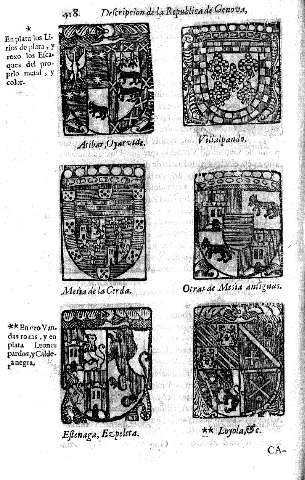 418. Descripcion de la Republica de Genova,
*
En plata los Li-
rios de plata, y
roxo los Esca-
ques del pro-
prio metal, y
color.
Villalpando.
Mesia de la Cerda.
Otras de Mesia antiguas.
** En oro Van-
das roxas, y en
plata Leones
pardos, y Calde-
ra negra,
Estenaga, Ezpeleta.
** Loyola, &c.
CA-